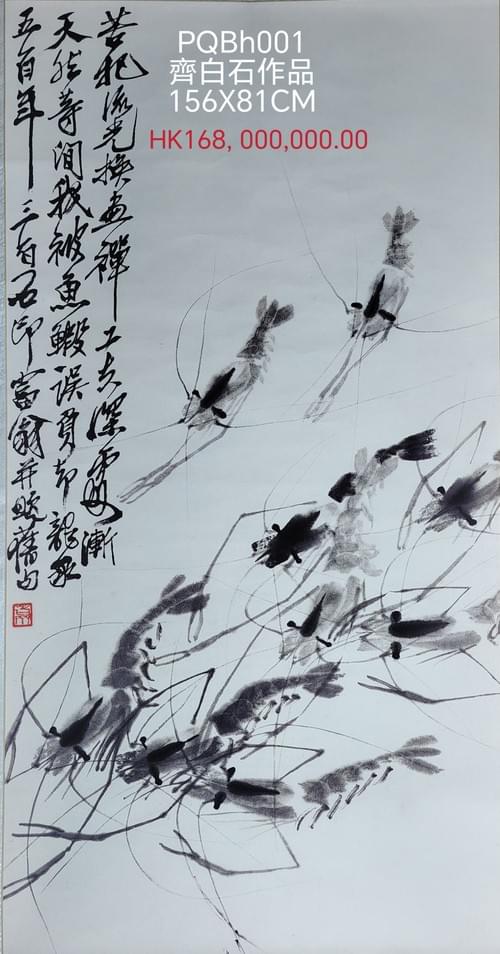 PQBh001
齊白石作品
156X81CM
HK168, 000,000.00
苦把流光換畫禪工夫深處漸
天然等閒我被魚鰕誤負却龍泉
五百年三百石印富翁并題舊句